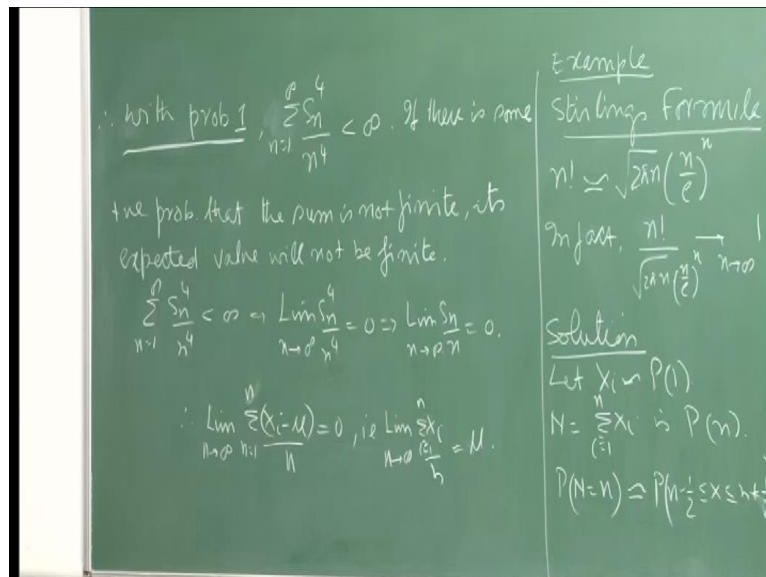 ∴ with prob 1, ∑_{n=1}^{∞} S_n^4/n^4 < ∞. If there is some
+ve prob. that the sum is not finite, its
expected value will not be finite.
∑_{n=1}^{∞} S_n^4/n^4 < ∞ ⇒ Lim_{n→∞} S_n^4/n^4 = 0 ⇒ Lim_{n→∞} S_n/n = 0.
∴ Lim_{n→∞} ∑_{n=1}^{n} (X_i-μ)/n = 0, ie Lim_{n→∞} ∑_{i=1}^{n} X_i/n = μ.
Example
Stirlings Formula
n! ≃ √2πn (n/e)^n
In fact, n!/√2πn (n/e)^n → 1 n→∞
Solution
Let X_i ~ P(1)
N = ∑_{i=1}^{n} X_i is P(n).
P(N=n) ≃ P(n-1/2 ≤ X ≤ n+